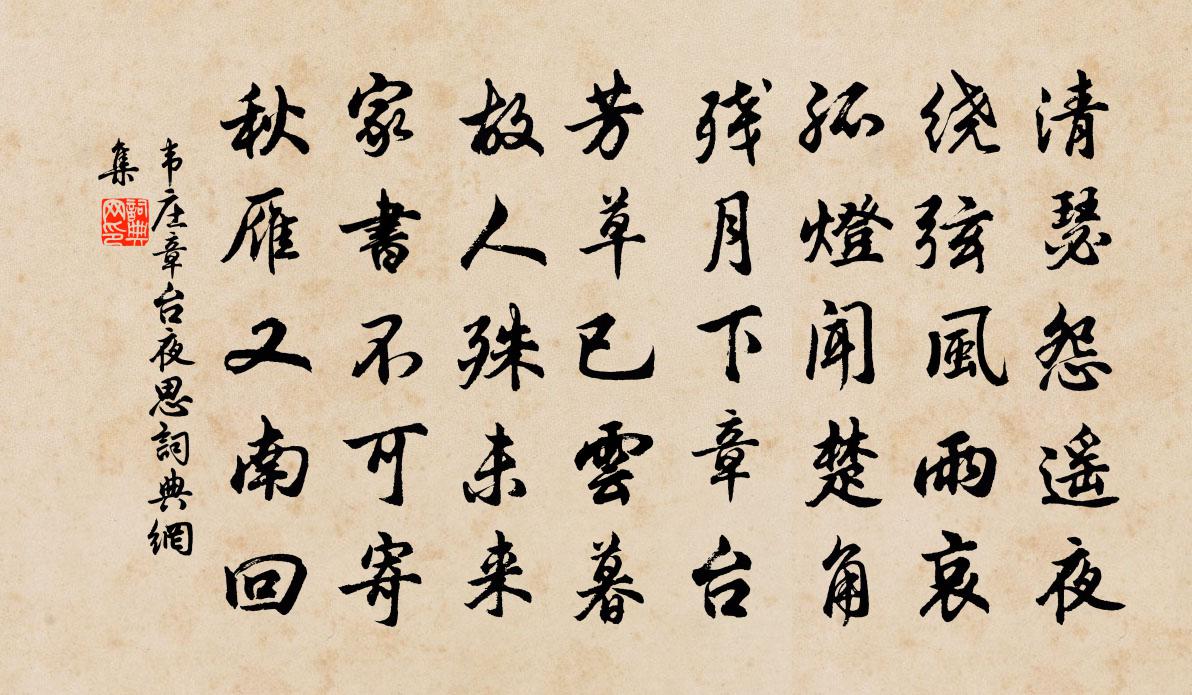 清瑟怨遥夜
绕弦風雨哀
孤燈闻楚角
残月下章台
芳草已雲暮
故人殊未来
家書不可寄
秋雁又南回
韦庄章台夜思詞典網
集
詞典
网印